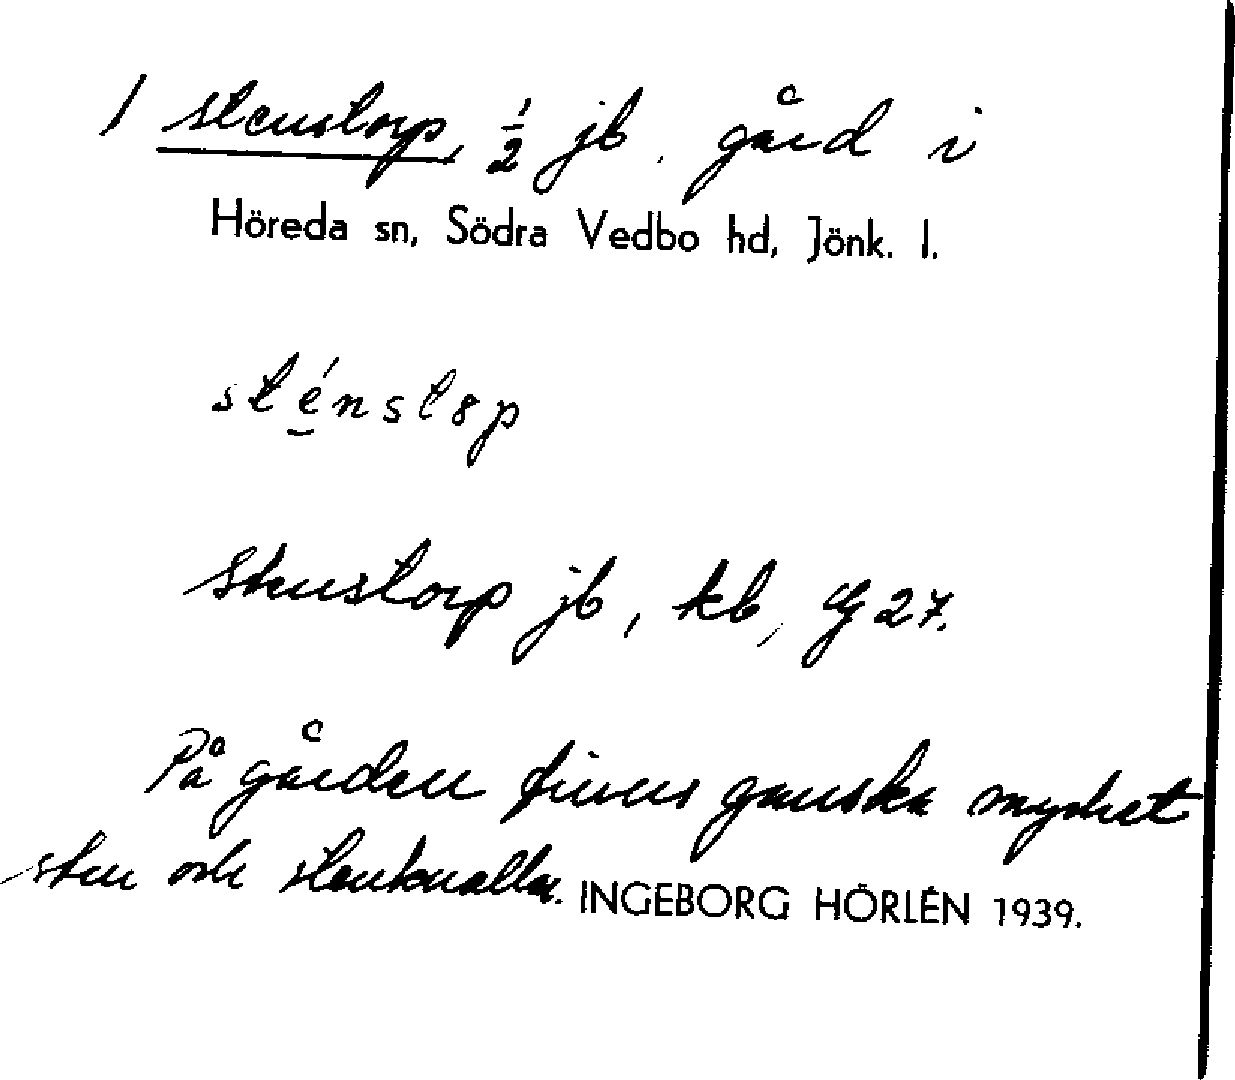 / Stenstorp, ½ jb. gård i
Höreda sn, Södra Vedbo hd, Jönk. l.
sténstɵp
Stenstorp jb, kb, G 27.
På gården finns ganska mycket
sten och stenknallar. INGEBORG HÖRLÉN 1939.